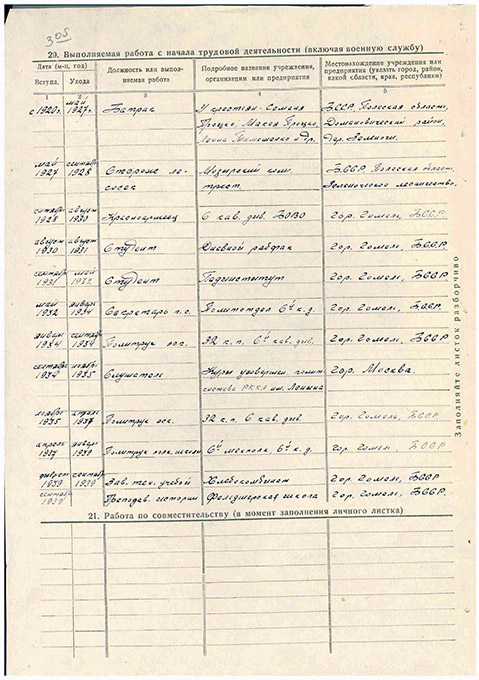 305
20. Выполняемая работа с начала трудовой деятельности (включая военную службу)
Дата (м-ц, год) Должность или выполняемая работа Подробное название учреждения, организации или предприятия Местонахождение учреждения или предприятия (указать город, район, область, края, республики)
Вступл. Ухода
1 2 3 4 5
с 1920г. май 1927г. Батрак У крестьян Семена БССР Полесская область,
Процко, Масея Процко, Домановичский район,
Тимошенко и др. дер.
май 1927 сентябрь 1928 Сторож лесосек Мозырский ком. трест БССР Полесская область
лесничество
сентябрь 1928 август 1930 Красноармеец 6 кав. див. БОВО Гор. Гомель, БССР.
август 1930 август 1931 Студент Дневной рабфак Гор. Гомель, БССР.
сентябрь 1931 май 1932 Студент Пединститут Гор. Гомель, БССР.
май 1932 январь 1934 Секретарь Политотдел 6й к.д. Гор. Гомель, БССР.
январь 1934 сентябрь 1934 Политрук эск. 32 к.п. 6й кав. див. Гор. Гомель, БССР
сентябрь 1934 ноябрь 1935 Слушатель Курсы усоверш. полит.
состава РККА им. Ленина Гор. Москва.
ноябрь 1935 апрель 1937 Политрук эск. 32 к.п. 6 кав. див. Гор. Гомель, БССР.
апрель 1937 январь 1939 Политрук полк. школы 6й мехполк 6й к.д. Гор. Гомель, БССР
февраль 1939 сентябрь 1939 Зав. тех. учебой Хлебокомбинат Гор. Гомель, БССР.
сентябрь 1939 Преподав. истории Фельдшерская школа Гор. Гомель, БССР.
21. Работа по совместительству (в момент заполнения личного листка)
Заполняйте листок разборчиво